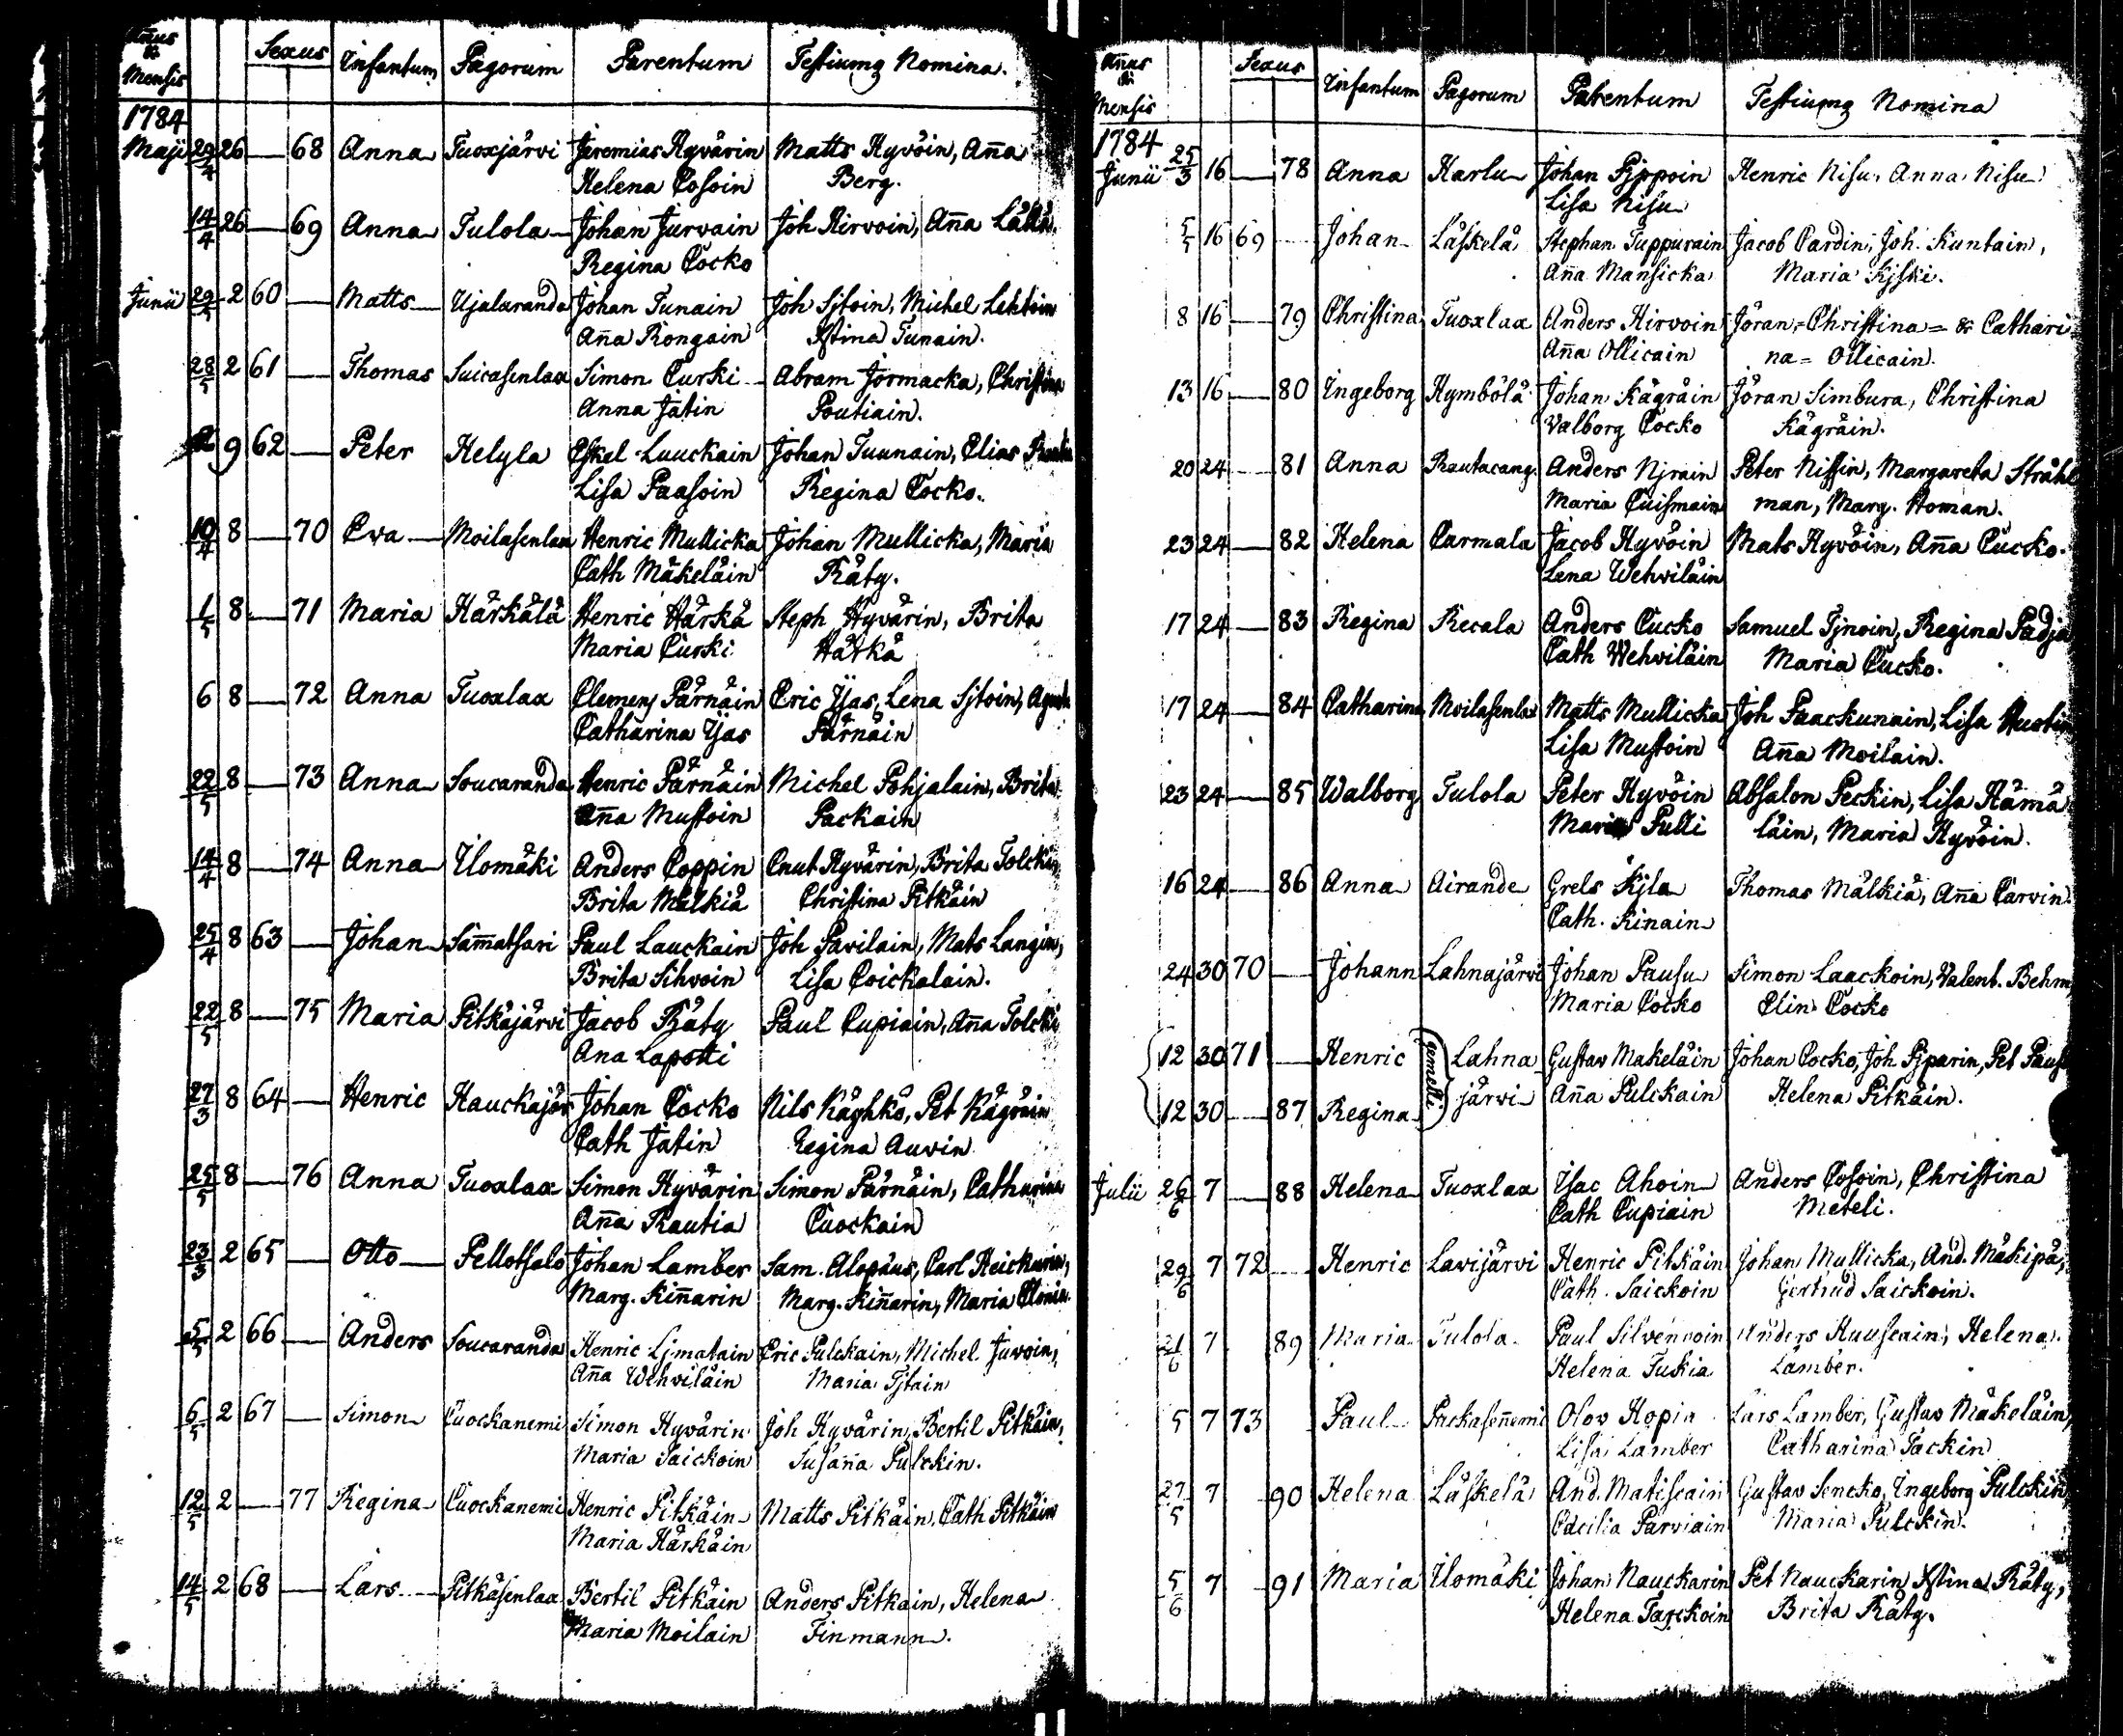 Annus & Mensis Sexus Infantum Pagorum Parentum Testiumq Nomina.
1784
Maji 29/4 26 — 68 Anna Tuoxjärvi Jeremias Hyvärin Matts Hyvöin, Aña
Helena Cosoin Berg.
14/4 26 — 69 Anna Tulola Johan Jurvain Joh Hirvoin, Aña
Regina Cocko
Junii 29/5 2 60 — Matts Ujalaranda Johan Tunain Joh Sjtoin, Michel Lehtoin
Aña Rongain Xstina Tunain.
28/5 2 61 — Thomas Suicasenlax Simon Curski Abram Jormacka, Christina
Anna Jatin Poutiain.
9 62 — Peter Helyla Eskel Luuckain Johan Tuunain, Elias
Lisa Paasoin Regina Cocko.
10/4 8 — 70 Eva Moilasenlax Henric Mullicka Johan Mullicka, Maria
Cath Mäkeläin Räty.
1/5 8 — 71 Maria Härkälä Henric Härkä Steph Hyvärin, Brita
Maria Curski Härkä
6 8 — 72 Anna Tuoxlax Clemens Pärnäin Eric Yjas, Lena Sjtoin,
Catharina Yjas Pärnäin
22/5 8 — 73 Anna Soucaranda Henric Pärnäin Michel Pohjalain, Brita
Aña Mustoin Packain
14/4 8 — 74 Anna Ilomäki Anders Coppin Cnut Hyvärin, Brita Tolckin,
Brita Mälkiä Christina Pitkäin
25/4 8 63 — Johan Sam̃atsari Paul Lauckain Joh Pavilain, Mats Langin,
Brita Sihvoin Lisa Coickalain.
22/5 8 — 75 Maria Pitkäjärvi Jacob Räty Paul Cupiain, Aña Tolcki
Ana Lapotti
27/3 8 64 — Henric Hauckajär Johan Cocko Nils Käyhkö, Pet Kägräin
Cath Jatin Regina Auvin
25/5 8 — 76 Anna Tuoxlax Simon Hyvärin Simon Pärnäin, Catharina
Aña Rautia Cuockain
23/3 2 65 — Otto Pellotsalo Johan Lamber Sam. Alopäus, Carl Heickurin,
Marg. Kiñarin Marg. Kiñarin, Maria
5/5 2 66 — Anders Soucaranda Henric Ljmatain Eric Pulckain, Michel Juvoin,
Aña Wehviläin Maria Tjtain
6/5 2 67 — Simon Cuockanemi Simon Hyvärin Joh Hyvärin, Bertil Pitkäin,
Maria Saickoin Susaña Pulckin.
12/5 2 — 77 Regina Cuockanemi Henric Pitkäin Matts Pitkäin, Cath Pitkäin
Maria Härkäin
14/5 2 68 — Lars Pitkäsenlax Bertil Pitkäin Anders Pitkain, Helena
Maria Moilain Finmann.
Añus & Mensis Sexus Infantum Pagorum Parentum Testiumq Nomina
1784
Junii 25/3 16 — 78 Anna Harlu Johan Pjppoin Henric Nisu, Anna Nisu
Lisa Nisu
5/5 16 69 — Johan Läskelä Stephan Tuppurain Jacob Pardin, Joh. Kuntain,
Aña Mansicka Maria Kjski.
8 16 — 79 Christina Tuoxlax Anders Hirvoin Jöran = Christina = & Cathari
Aña Ollicain na = Ollicain.
13 16 — 80 Ingeborg Kymbölä Johan Kägräin Jöran Simbura, Christina
Valborg Cocko Kägräin.
20 24 — 81 Anna Rautacang. Anders Njrain Peter Nissin, Margareta Stråhl
Maria Cuismain man, Marg. Homan.
23 24 — 82 Helena Carmala Jacob Hyvöin Mats Hyvöin, Aña Cucko.
Lena Wehviläin
17 24 — 83 Regina Recala Anders Cucko Samuel Tjnoin, Regina Padja
Cath Wehviläin Maria Cucko.
17 24 — 84 Catharina Moilasenlax Matts Mullicka Joh Paackunain, Lisa
Lisa Mustoin Aña Moilain.
23 24 — 85 Walborg Tulola Peter Hyvöin Absalon Peckin, Lisa Hämä
Maria Pulli läin, Maria Hyvöin.
16 24 — 86 Anna Airande Grels Kjla Thomas Mälkiä, Aña Carvin.
Cath. Kinain
24 30 70 — Johann Lahnajärvi Johan Pausu Simon Laackoin, Valent. Behm
Maria Cocko Elin Cocko
12 30 71 — Henric (gemelli) Lahna Gustav Makeläin Johan Cocko, Joh Pjparin, Pet Paus
12 30 — 87 Regina järvi Aña Pulckain Helena Pitkäin.
Julii 26/6 7 — 88 Helena Tuoxlax Isac Ahoin Anders Cosoin, Christina
Cath Cupiain Meteli.
29/6 7 72 — Henric Lavijärvi Henric Pitkäin Johan Mullicka, And. Mäkipä,
Cath. Saickoin Gertrud Saickoin.
21/6 7 89 Maria Tulola Paul Silvennoin Anders Huuscain, Helena
Helena Tukia Lamber.
5 7 73 Paul Packaseñemi Olov Hopia Lars Lamber, Gustav Mäkeläin,
Lisa Lamber Catharina Tackin
27/5 7 90 Helena Läskelä And. Matiscain Gustav Sencko, Ingeborg Pulckin
Cæcilia Parviain Maria Pulckin.
5/6 7 91 Maria Ilomäki Johan Nauckarin Pet Nauckarin Xstina Räty,
Helena Tarckoin Brita Räty.